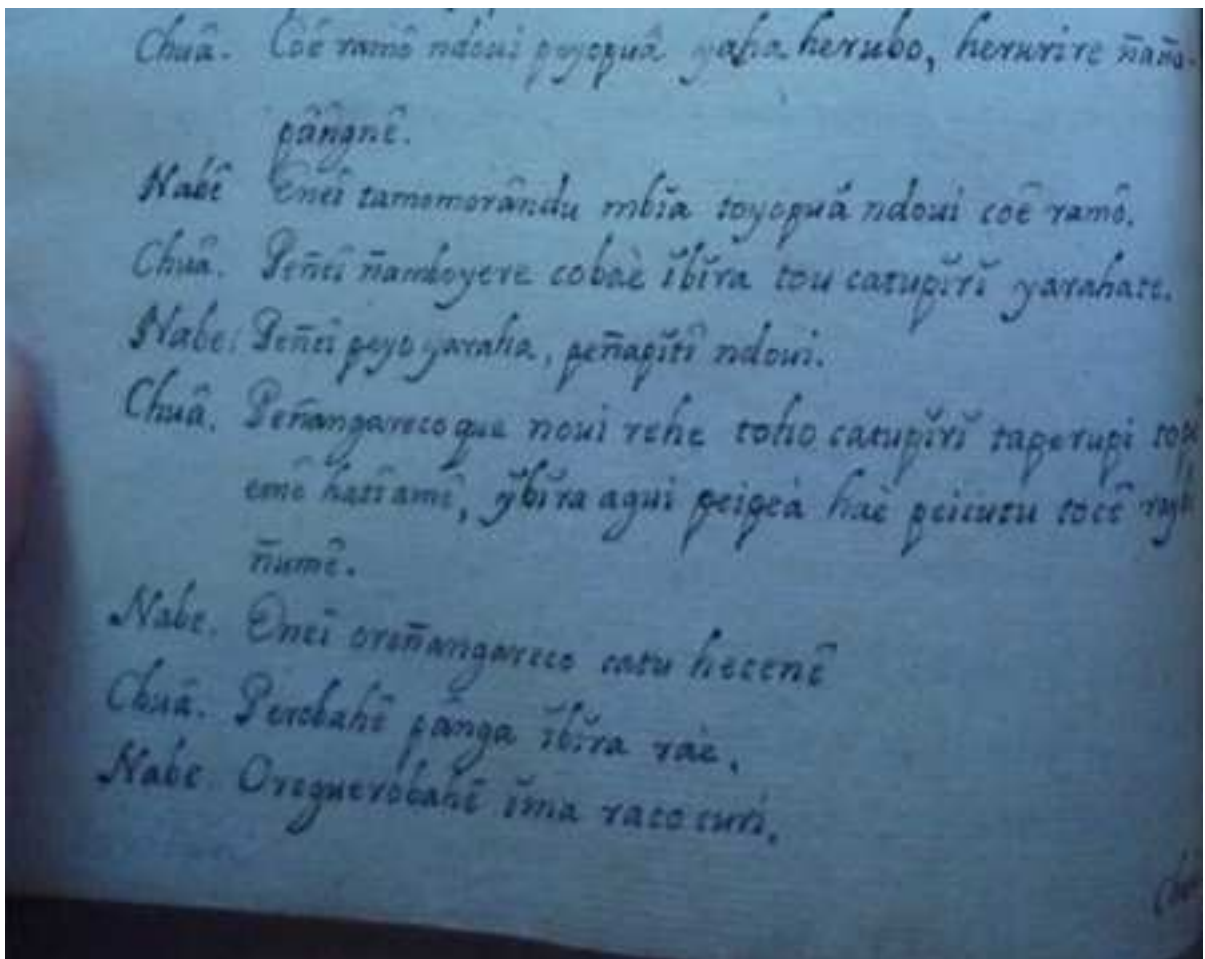 Chuâ. Coê ramô ndoui peyopuâ yaha herubo, herurire ñaño-
pângnê.
Nabê Enêi tamomorându mbĭa toyopuâ ndoui coê ramô.
Chuâ. Peñeî ñamboyere cobaè ĭbĭra tou catupĭrĭ yarahate.
Nabe. Peñeî peyo yaraha, peñapĭtî ndoui.
Chuâ. Peñangareco que noui rehe toho catupĭrĭ taperupi
emê hatî amê, ỹbĭra agui peipeà haè peicutu tocê
ñumê.
Nabe. Eneî oroñangareco catu hecenê
Chuâ. Perobahê pânga ĭbĭra raè.
Nabe. Oreguerobahê ĭma raco curi.